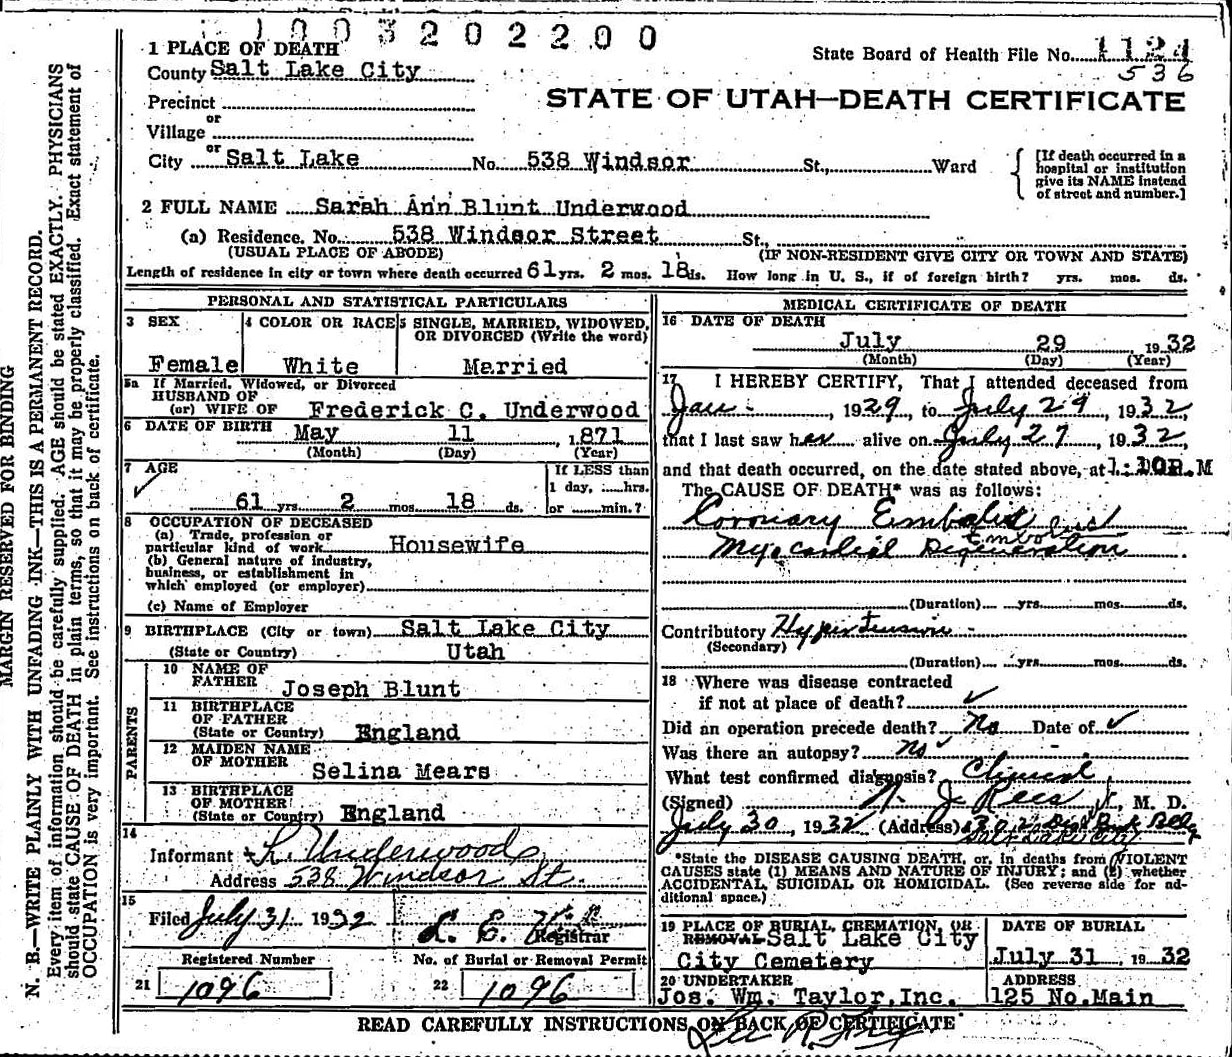 1003202200
1 PLACE OF DEATH
State Board of Health File No. 1124
County Salt Lake City
536
Precinct
STATE OF UTAH—DEATH CERTIFICATE
or
Village
or
City Salt Lake No. 538 Windsor St., Ward
[If death occurred in a hospital or institution give its NAME instead of street and number.]
2 FULL NAME Sarah Ann Blunt Underwood
(a) Residence. No. 538 Windsor Street St.,
(USUAL PLACE OF ABODE) (IF NON-RESIDENT GIVE CITY OR TOWN AND STATE)
Length of residence in city or town where death occurred 61 yrs. 2 mos. 18 ds. How long in U. S., if of foreign birth? yrs. mos. ds.
PERSONAL AND STATISTICAL PARTICULARS
3 SEX
Female
4 COLOR OR RACE
White
5 SINGLE, MARRIED, WIDOWED, OR DIVORCED (Write the word)
Married
5a If Married, Widowed, or Divorced
HUSBAND OF
(or) WIFE OF Frederick C. Underwood
6 DATE OF BIRTH May 11, 1871
(Month) (Day) (Year)
7 AGE
If LESS than
1 day, ......hrs.
61 yrs. 2 mos. 18 ds. or ......min.?
8 OCCUPATION OF DECEASED
(a) Trade, profession or
particular kind of work Housewife
(b) General nature of industry,
business, or establishment in
which employed (or employer)
(c) Name of Employer
9 BIRTHPLACE (City or town) Salt Lake City
(State or Country) Utah
PARENTS
10 NAME OF
FATHER Joseph Blunt
11 BIRTHPLACE
OF FATHER
(State or Country) England
12 MAIDEN NAME
OF MOTHER Selina Mears
13 BIRTHPLACE
OF MOTHER
(State or Country) England
14
Informant L. Underwood
Address 538 Windsor St.
15
Filed July 31 1932
L. E.
Registrar
Registered Number No. of Burial or Removal Permit
21 1096 22 1096
MEDICAL CERTIFICATE OF DEATH
16 DATE OF DEATH
July 29 1932
(Month) (Day) (Year)
17 I HEREBY CERTIFY, That I attended deceased from
Jan - , 1929, to July 29, 1932,
that I last saw her alive on July 27, 1932,
and that death occurred, on the date stated above, at 1:10P.M
The CAUSE OF DEATH* was as follows:
Coronary Embolis
Embolis
Myocardial Degeneration
(Duration) yrs. mos. ds.
Contributory Hypertension -
(Secondary)
(Duration) yrs. mos. ds.
18 Where was disease contracted
if not at place of death? ✓
Did an operation precede death? No Date of ✓
Was there an autopsy? no ✓
What test confirmed diagnosis? Clinical
(Signed) J. Rees Jr, M. D.
July 30, 1932 (Address)
Salt Lake City
*State the DISEASE CAUSING DEATH, or, in deaths from VIOLENT
CAUSES state (1) MEANS AND NATURE OF INJURY; and (2) whether
ACCIDENTAL, SUICIDAL OR HOMICIDAL. (See reverse side for ad-
ditional space.)
19 PLACE OF BURIAL, CREMATION, OR
REMOVAL Salt Lake City
City Cemetery
DATE OF BURIAL
July 31, 1932
20 UNDERTAKER
Jos. Wm. Taylor, Inc.
ADDRESS
125 No. Main
READ CAREFULLY INSTRUCTIONS ON BACK OF CERTIFICATE
MARGIN RESERVED FOR BINDING
N. B.—WRITE PLAINLY WITH UNFADING INK—THIS IS A PERMANENT RECORD.
Every item of information should be carefully supplied. AGE should be stated EXACTLY. PHYSICIANS
should state CAUSE OF DEATH in plain terms, so that it may be properly classified. Exact statement of
OCCUPATION is very important. See instructions on back of certificate.